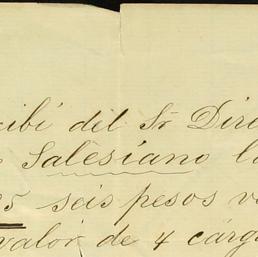 cibí del Sr Dire
Salesiano la
5 seis pesos va
valor de 4 carga